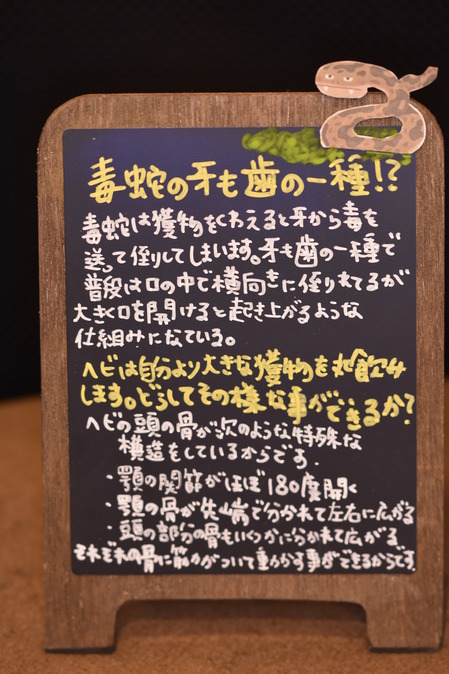 毒蛇の牙も歯の一種!?
毒蛇は獲物をくわえると牙から毒を
送って倒してしまいます。牙も歯の一種で
普段は口の中で横向きに倒れてるが
大きく口を開けると起き上がるような
仕組みになている。
ヘビは自分より大きな獲物も丸飲み
します。どうしてその様な事ができるか?
ヘビの頭の骨が次のような特殊な
構造をしているからです。
・顎の関節がほぼ180度開く
・顎の骨が先端で分かれて左右に広がる
・頭の部分の骨もいくつかにわかれて広がる
それぞれの骨に筋力がついて動かす事ができるからです